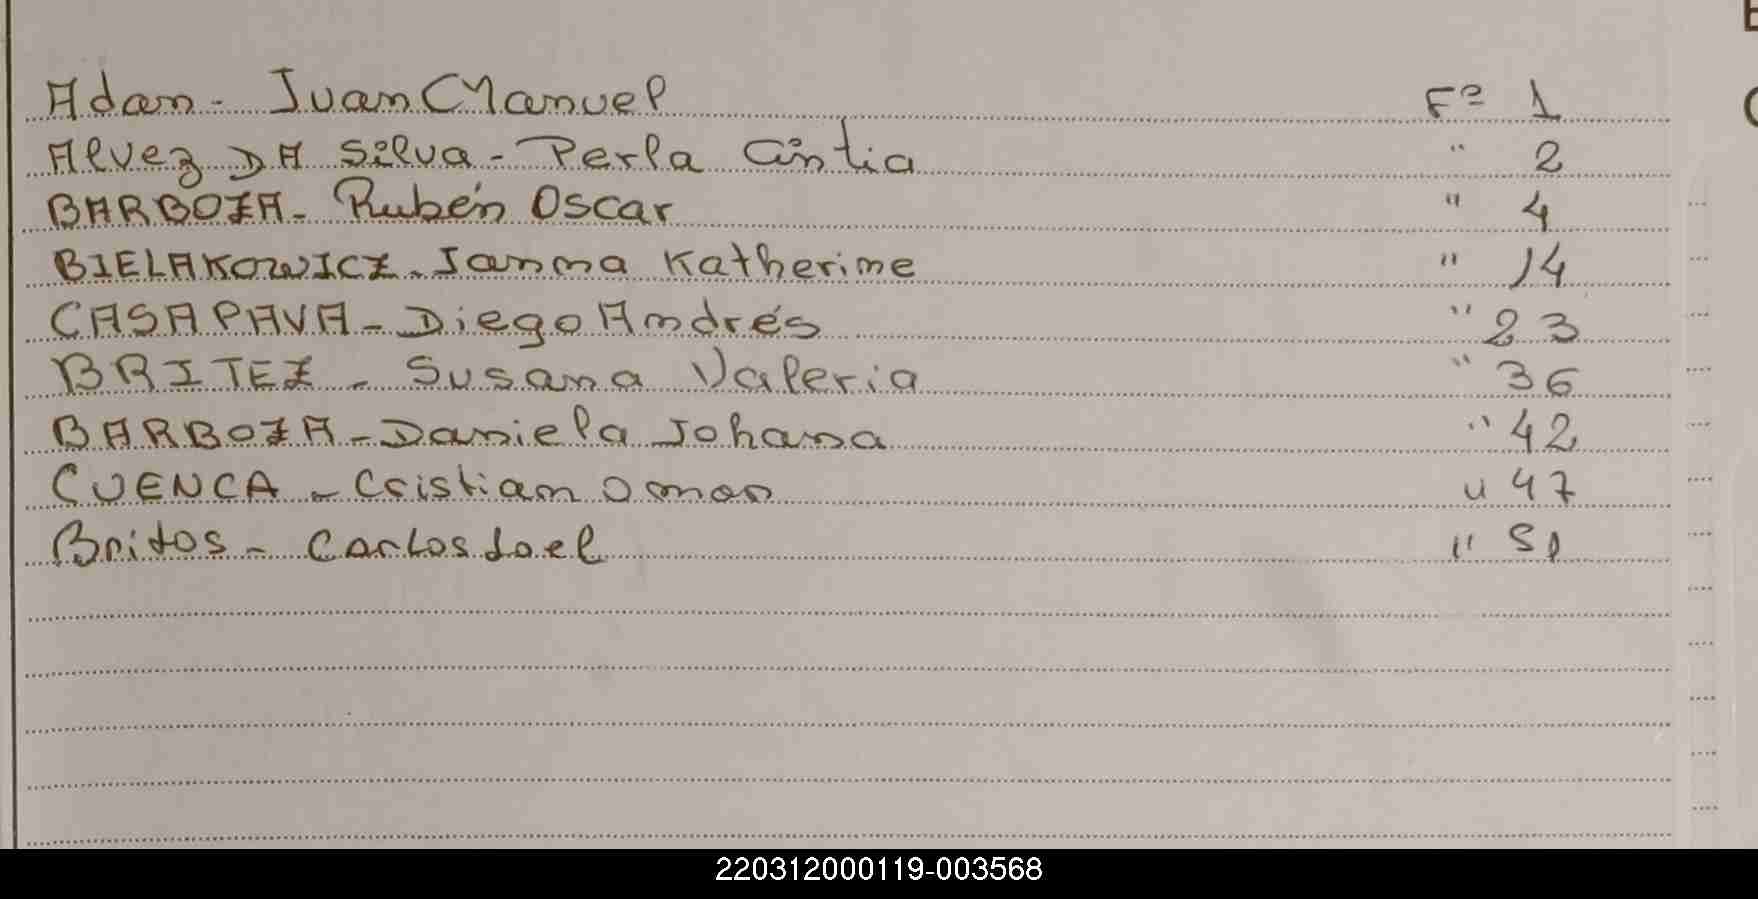 Adan - Juan Manuel Fº 1
Alvez DA Silva - Perla Cintia " 2
BARBOZA - Rubén Oscar " 4
BIELAKOWICZ - Ianna Katherine " 14
CASAPAVA - Diego Andrés " 23
BRITEZ - Susana Valeria " 36
BARBOZA - Daniela Johana " 42
CUENCA - Cristian Omar " 47
Britos - Carlos Joel " 51
220312000119-003568